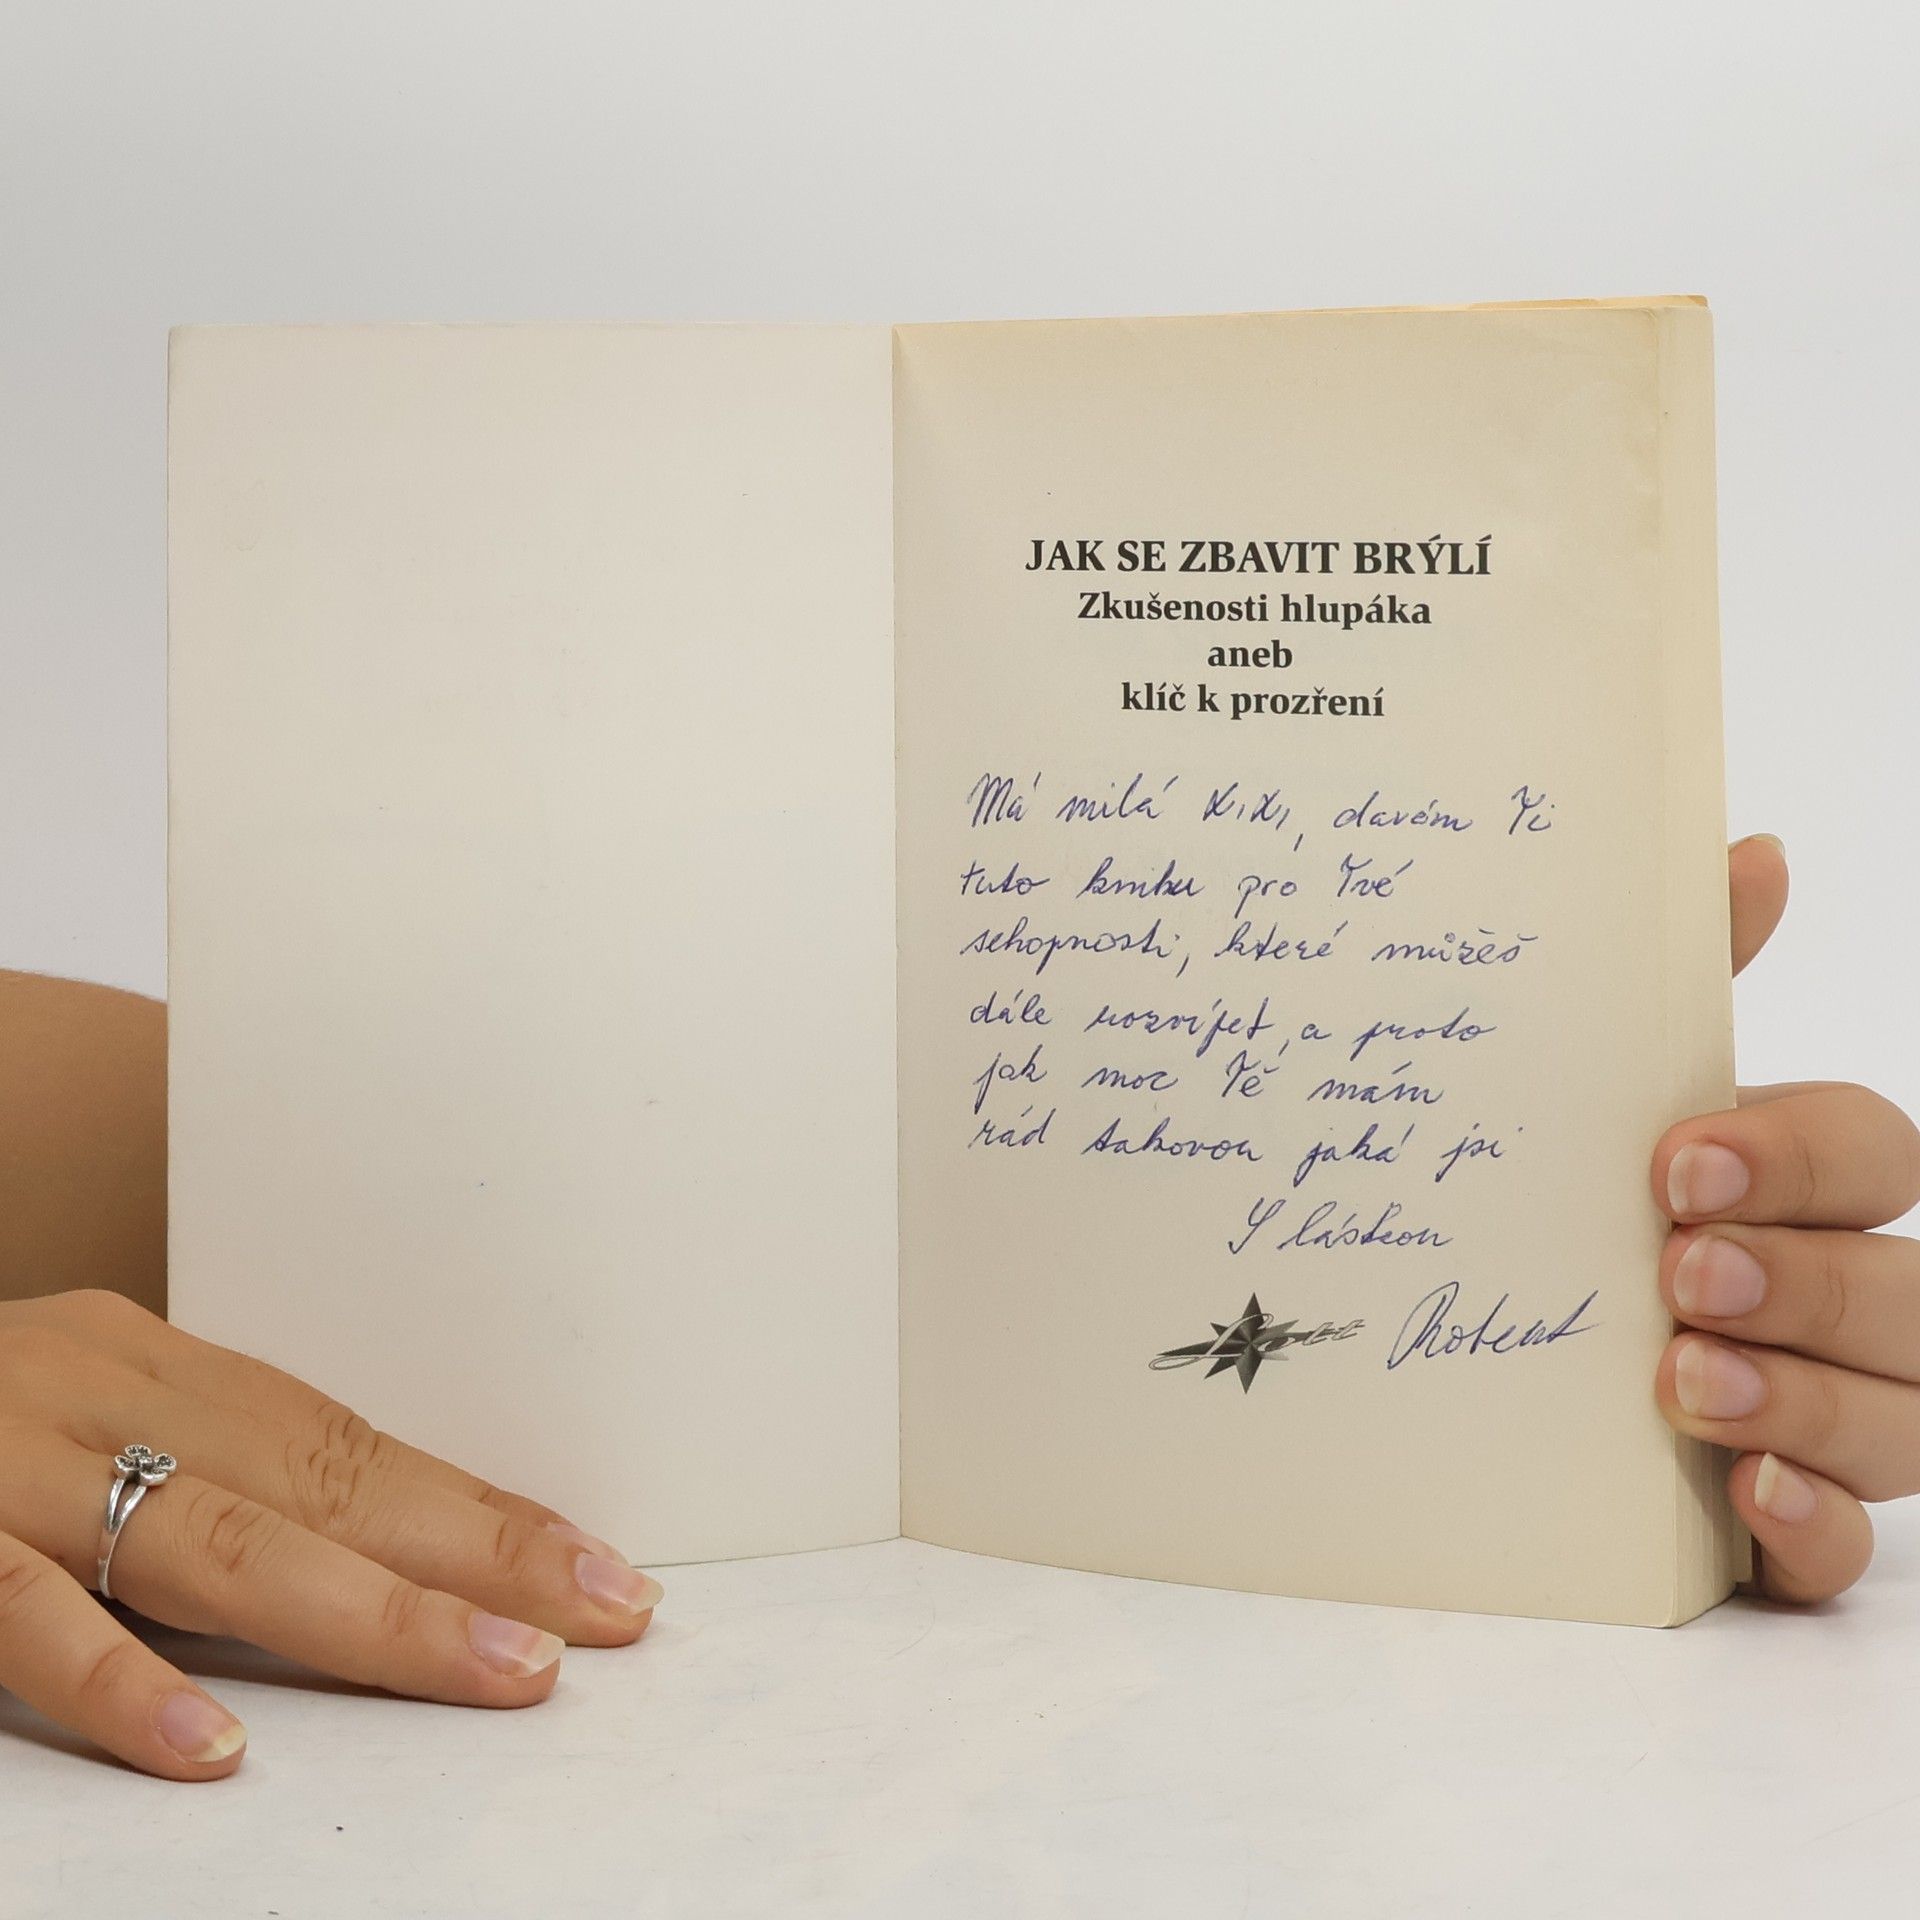 JAK SE ZBAVIT BRÝLÍ
Zkušenosti hlupáka
aneb
klíč k prozření
Má milá davám Ti
tuto knihu pro Tvé
schopnosti, které můžeš
dále rozvíjet, a proto
jak moc Tě mám
rád takovou jaká jsi
S láskou
Lott Robert